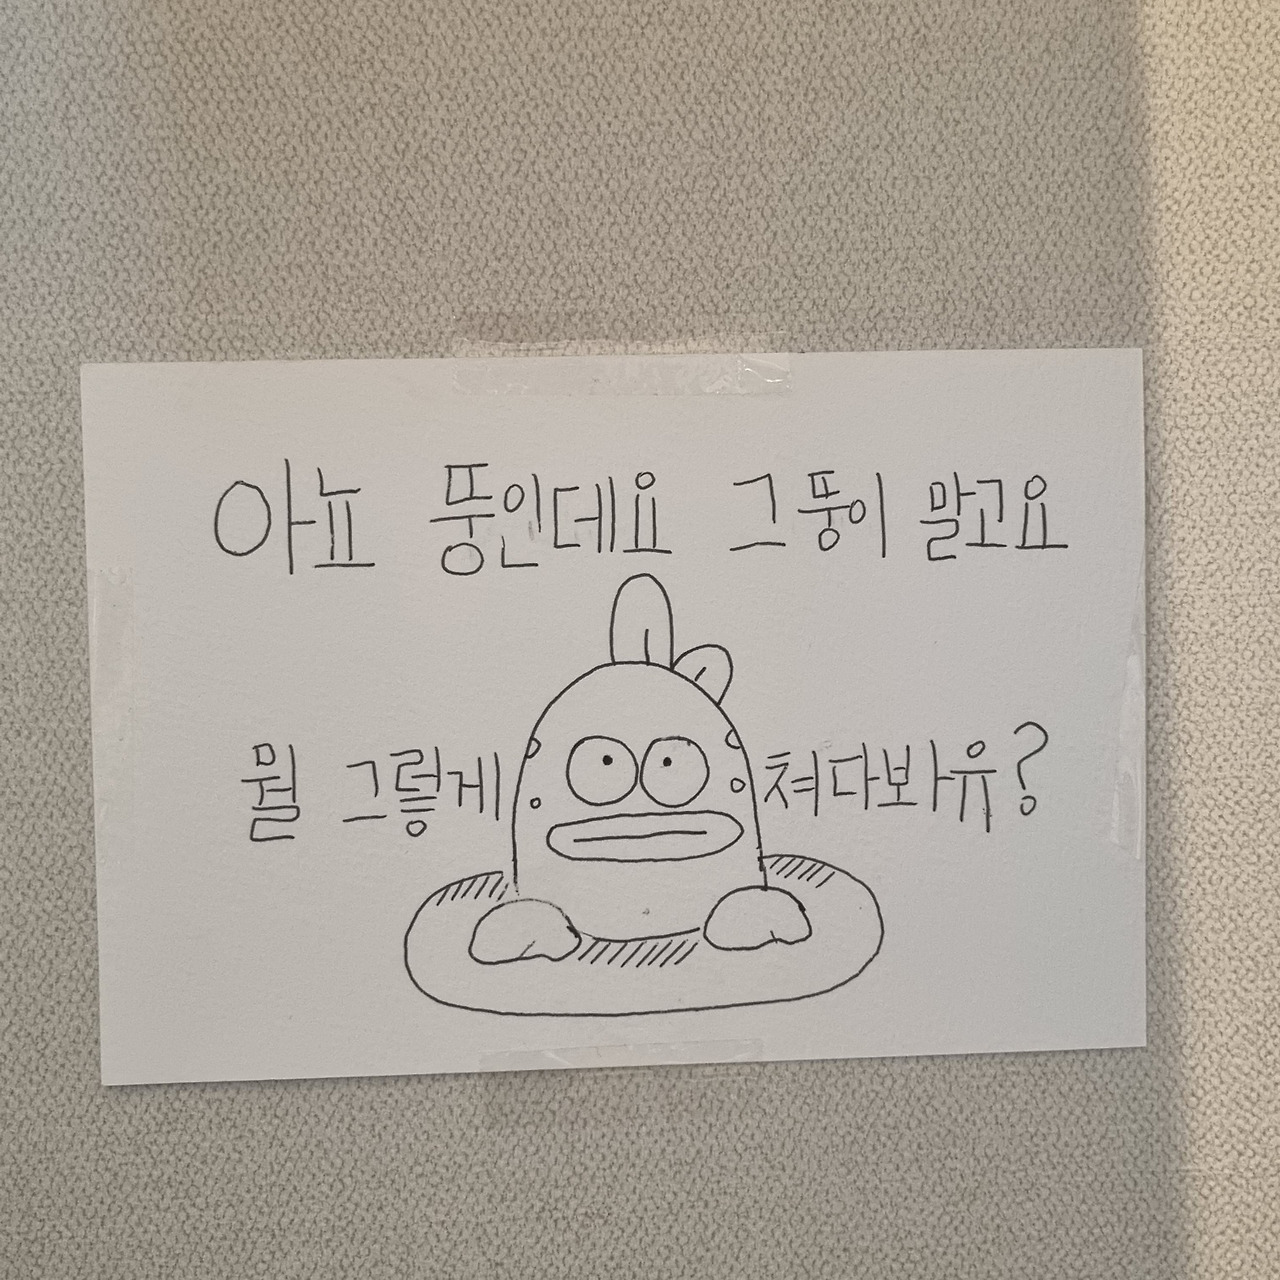 아뇨 뚱인데요 그 뚱이 말고요
뭘 그렇게 쳐다봐유?